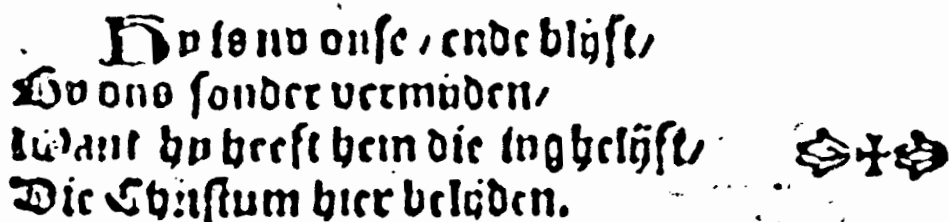 Hy is nv onse / ende blijft /
By ons sonder vermijden /
Want hy heeft hem die inghelijft /
Die Christum hier belijden.